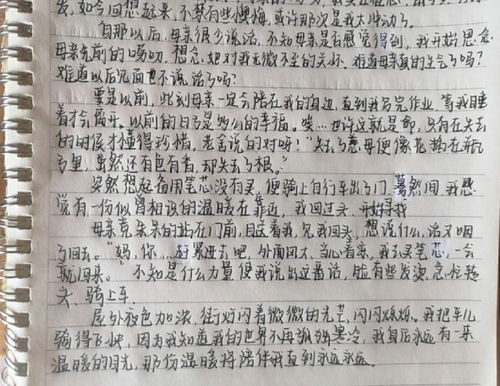 发,如今回想起来,不禁有些懊悔,或许那次是我太冲动了。
自那以后,母亲很少说话,不知母亲是否感觉得到,我开始思念
母亲先前的唠叨,想念她对我无微不至的关怀,难道母亲真的生气了吗?
难道以后见面也不说话了吗?
要是以前,此刻母亲一定会陪在我的身边,直到我写完作业,等我睡
着才会离开。以前的日子是多么的幸福。唉…也许这就是命,只有在失去
的时候才懂得珍惜。老舍说的对呀!“失了慈母便像花插在瓶
子里,虽然还有色有香,却失去了根。”
突然想起备用笔芯没有买,便骑上自行车出了门,蓦然间,我感
觉有一份似曾相识的温暖在靠近,我回过头,开始寻找
母亲竟呆呆的站在门前,目送着我,见我回头,想说什么,话又咽
了回去。“妈,你…赶紧进去吧,外面风大,当心着凉,我去买笔芯,一会
就回来。”不知是什么力量使我说出这番话,脸有些发烫,急忙转
头,骑上车。
屋外夜色加浓,街灯闪着微微的光芒,闪闪烁烁。我把车儿
骑得飞快,因为我知道我的世界不再孤独寒冷,我身后永远有一束
温暖的目光,那份温暖将陪伴我直到永远永远。